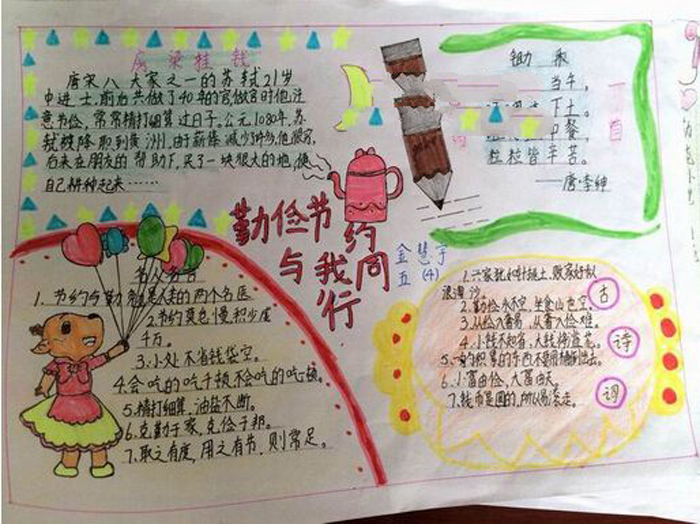 房梁挂钱
唐宋八大家之一的苏轼21岁
中进士,前后共做了40年的官做官时他注
意节俭,常常精打细算过日子。公元1080年,苏
轼被降职到黄州,由于薪俸减少
后来在朋友的帮助下,买了一块很大的地,
自己耕种起来……
锄禾
当午,
下土。
餐
粒粒皆辛苦。
——唐·李绅
一首
勤俭节约
与我同行
金慧宇
五(4)
名人名言
1.节约与勤是人类的两个名医
2.节约莫怠慢积少成
千万。
3.小处不省钱袋空。
4.会吃的吃千顿,不会吃的吃一顿。
5.精打细算,油盐不断。
6.克勤于家,克俭于邦。
7.取之有度,用之有节,则常足。
1.兴家犹如针挑土,败家好似
浪淘沙
2.勤俭永不穷,坐食山也空。
3.从俭入奢易,从奢入俭难。
4.小钱不知省,大钱将滥花。
5.积累的东西不要
6.小富由俭,大富由天。
7.钱币是圆的,所以易滚走。
古
诗
词